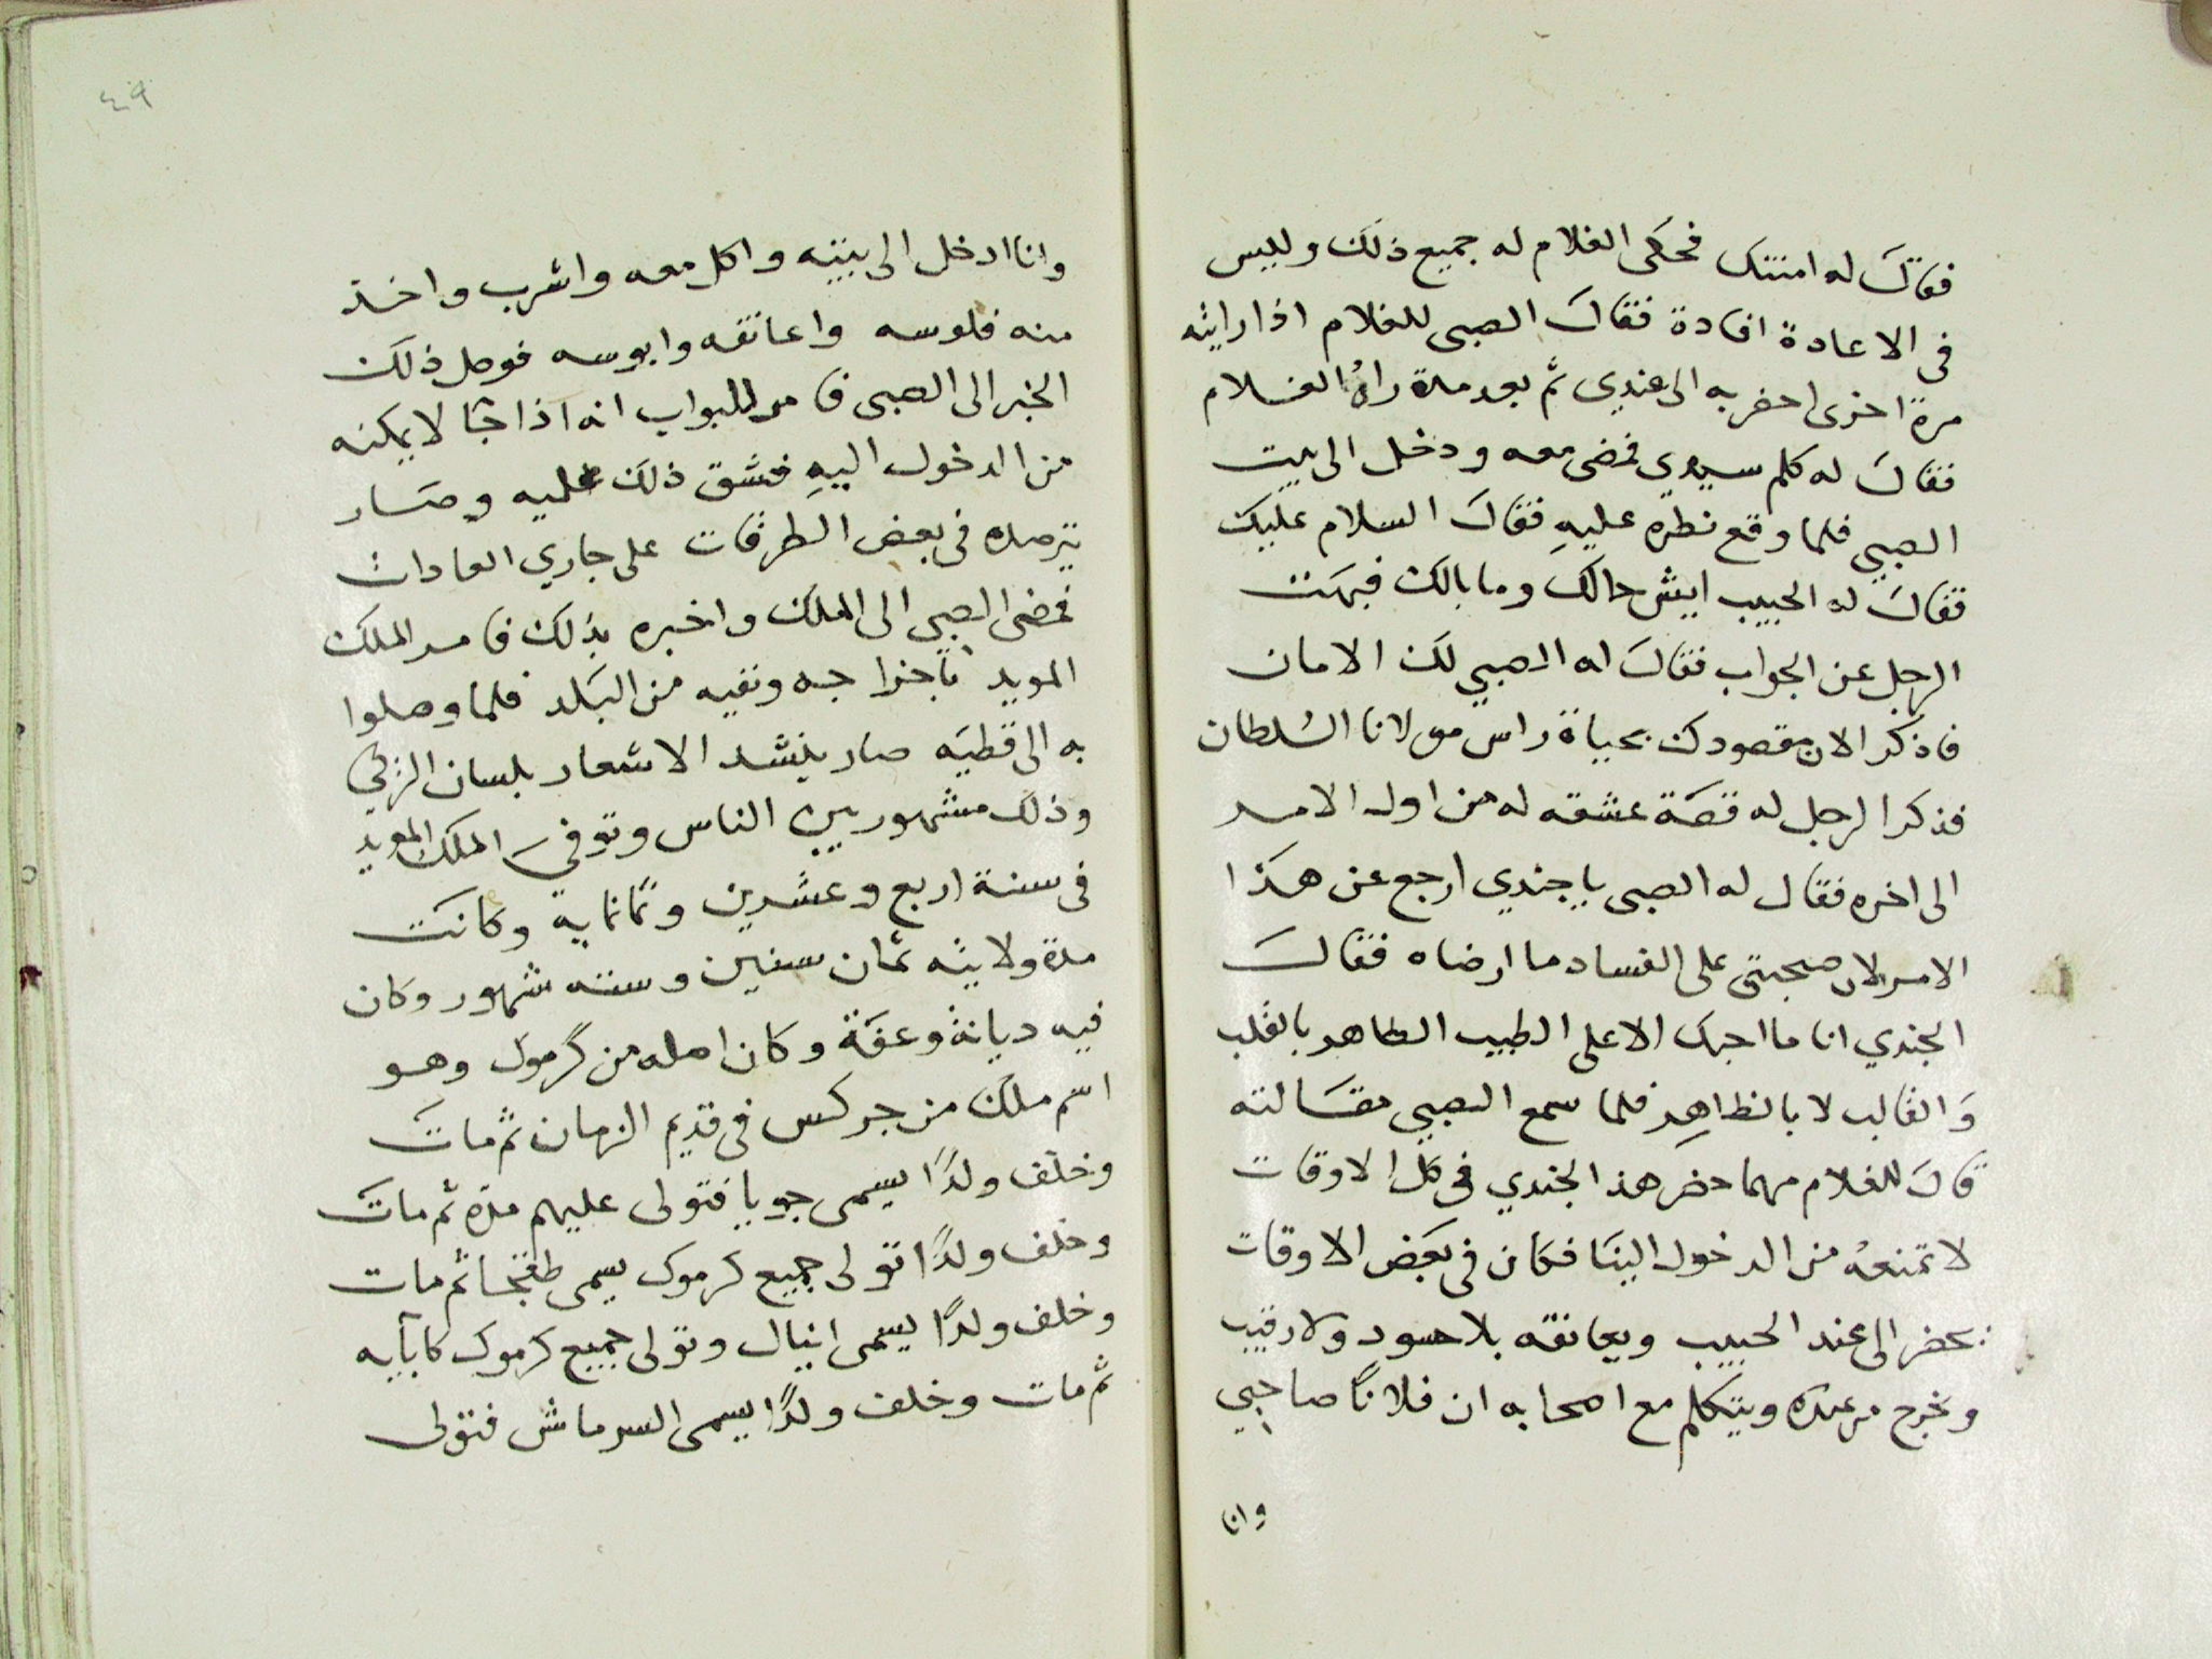 فقال له امنتك فحكى الغلام له جميع ذلك وليس
فى الاعادة افادة فقال الصبى للغلام اذا رايته
مرة اخرى احضر به الى عندي ثم بعد مدة راه الغلام
فقال له كلم سيدي فمضى معه ودخل الى بيت
الصبي فلما وقع نظره عليه فقال السلام عليك
فقال له الحبيب ايش حالك وما بالك فبهت
الرجل عن الجواب فقال له الصبي لك الامان
فاذكر الان مقصودك بحياة راس مولانا السُلطان
فذكر الرجل له قصَة عشقه له من اول الامر
الى اخره فقال له الصبى يا جندي ارجع عن هذا
الامر لان صحبتى على الفساد ما ارضاه فقال
الجندي انا ما احبك الا على الطيب الطاهر بالقلب
وَالقالب لا بالظاهِر فلما سمع الصبي مقَالته
قال للغلام مهما حضر هذا الجندي فى كل الاوقات
لا تمنعهُ من الدخول الينَا فكان فى بعَض الاوقات
يحضر الى عند الحبيب ويعانقه بلا حسود ولا رقيب
ويخرج من عنده ويتكلم مع اصحابه ان فلانًا صاحبي
وانا
٤٩
وانا ادخل الى بيته واكل معه واشرب واخذ
منه فلوسه واعانقه وابوسه فوصل ذلك
الخبر الى الصبى فامر للبواب انه اذا جَا لا يمكنه
من الدخول اليهِ فشق ذلك عليه وصَار
يترصده فى بعض الطرقات على جاري العادات
فمضى الصبي الى الملك واخبره بذلك فامر الملك
المويد باخراجه ونفيه من البَلد فلما وصلوا
به الى قطيَه صار ينشد الاشعار بلسان التركي
وذلك مشهور بين الناس وتوفي الملك المويد
فى سنة اربع وعشرين وثمانماية وكانت
مدة ولايته ثمان سنين وسته شهور وكان
فيه ديانة وعفَة وكان اصله من كرموك وهو
اسم ملك من جركس فى قديم الزمان ثم مات
وخلف ولدًا يسمى جوبا فتولى عليهم مدة ثم مات
وخلف ولدًا تولى جميع كرموك يسمى طغجا ثم مات
وخلف ولدًا يسمى اينال وتولى جميع كرموك كابايه
ثم مات وخلف ولدًا يسمى السرماش فتولى